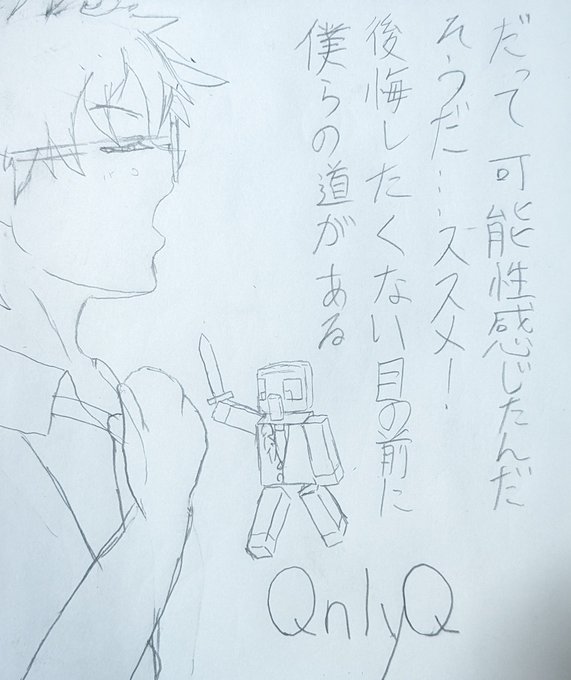 だって 可能性感じたんだ
そうだ…ススメ!
後悔したくない目の前に
僕らの道がある
QnlyQ